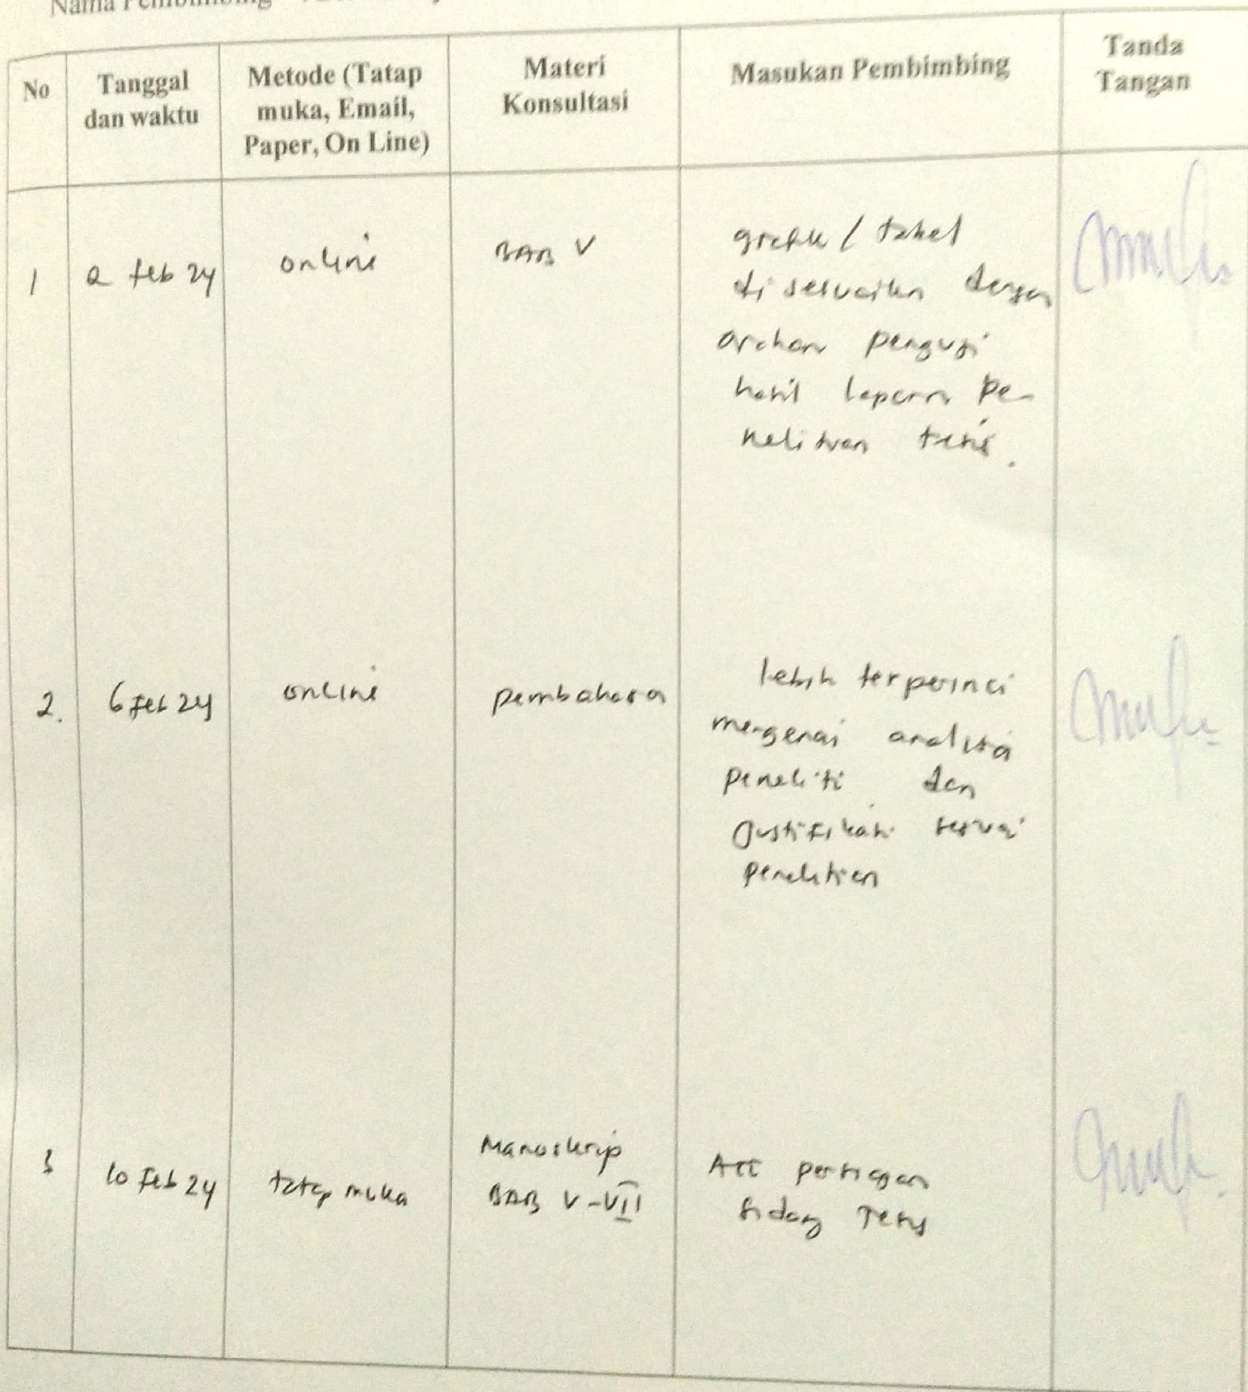 Nama Pembimbing
No
Tanggal
dan waktu
Metode (Tatap
muka, Email,
Paper, On Line)
Materi
Konsultasi
Masukan Pembimbing
Tanda
Tangan
1
2 feb 24
online
BAB V
grafik / tabel
disesuaikan dengan
arahan penguji
hasil laporan pe-
nelitian tesis.
2.
6 feb 24
online
pembahasan
lebih terperinci
mengenai analisa
peneliti dan
justifikasi sesuai
penelitian
3
10 Feb 24
tatap muka
Manoskrip
BAB V-VII
Acc persiapan
sidang Tesis